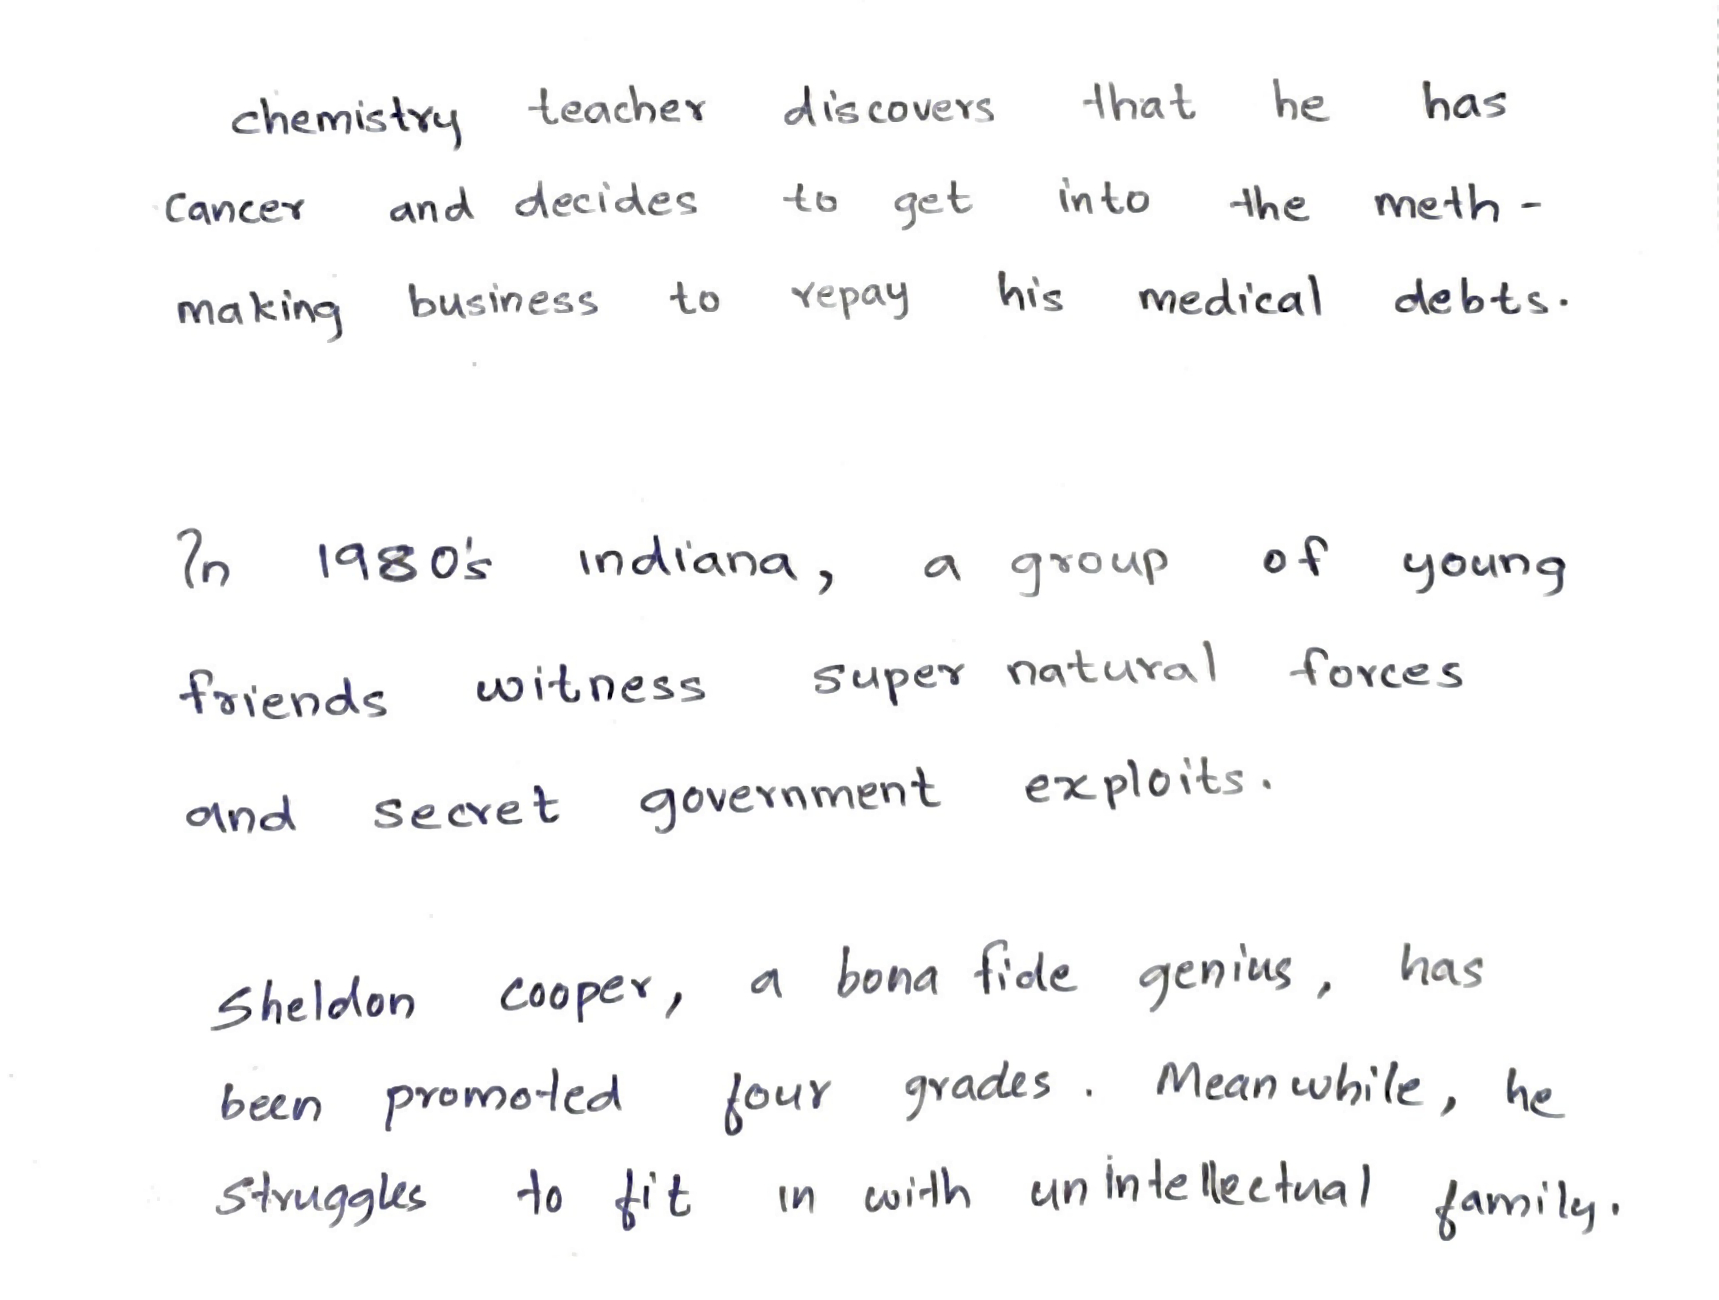 chemistry teacher discovers that he has
cancer and decides to get into the meth-
making business to repay his medical debts.
In 1980's indiana, a group of young
friends witness super natural forces
and secret government exploits.
Sheldon cooper, a bona fide genius, has
been promoted four grades. Mean while, he
struggles to fit in with un intellectual family.